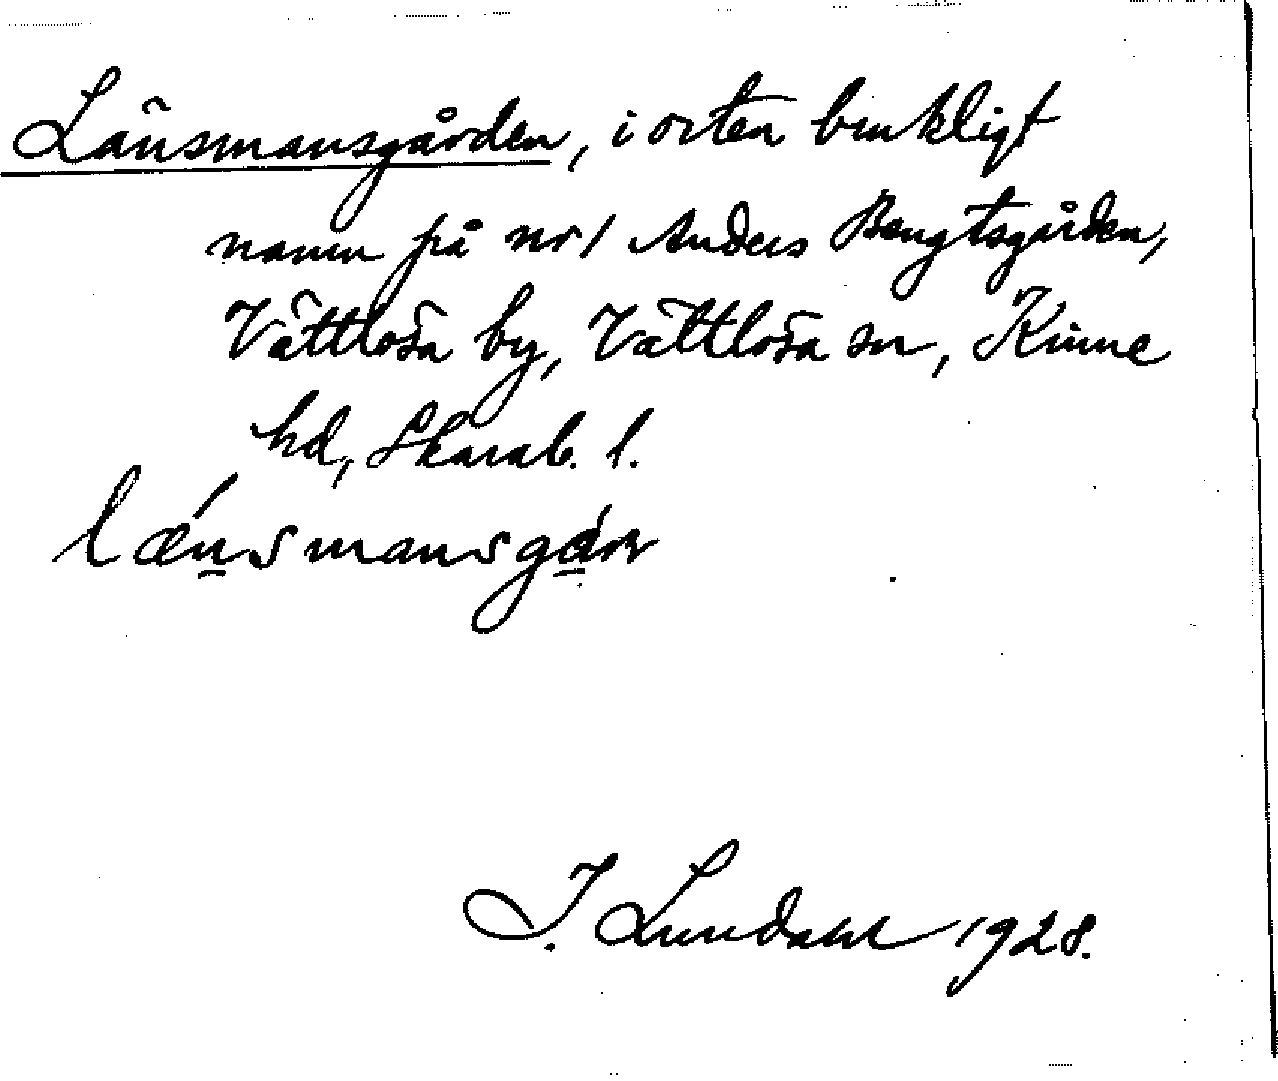 Länsmansgården, i orten brukligt
namn på nr 1 Anders Bengtsgården,
Vättlösa by, Vättlösa sn, Kinne
hd, Skarab. l.
lænsmansgår
I. Lundahl 1928.